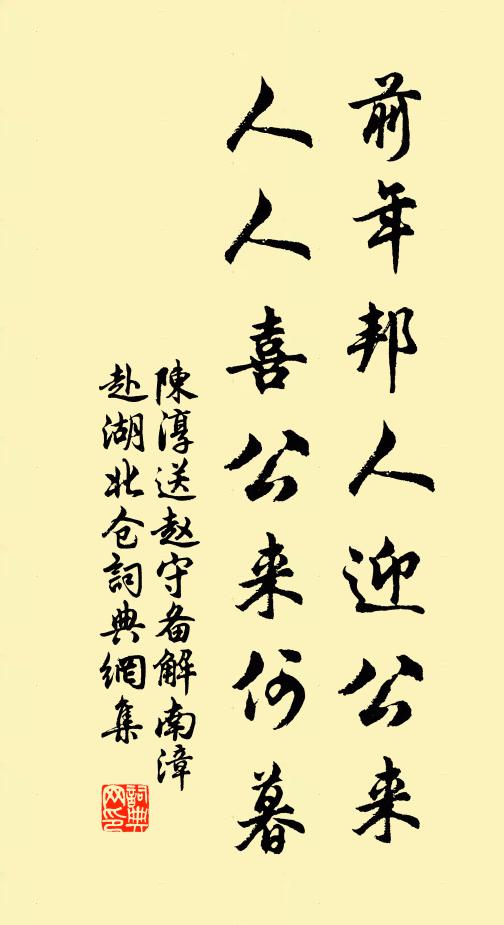 前年邦人迎公来
人人喜公来何暮
陳淳送赵守备解南漳
赴湖北仓詞典網集
詞典
网印